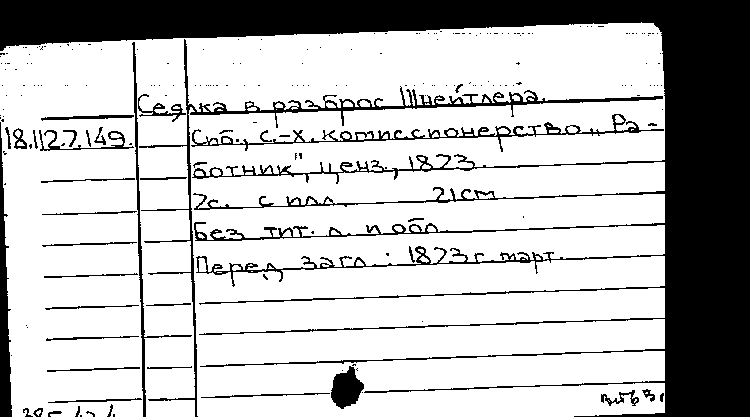 Сеялка в разброс Шнейтлера.
18.112.7.149.
Спб., С.-х. комиссионерство „Ра-
ботник", ценз., 1873.
7с. с илл. 21см.
Без тит. л. и обл.
Перед загл.: 1873 г. март.